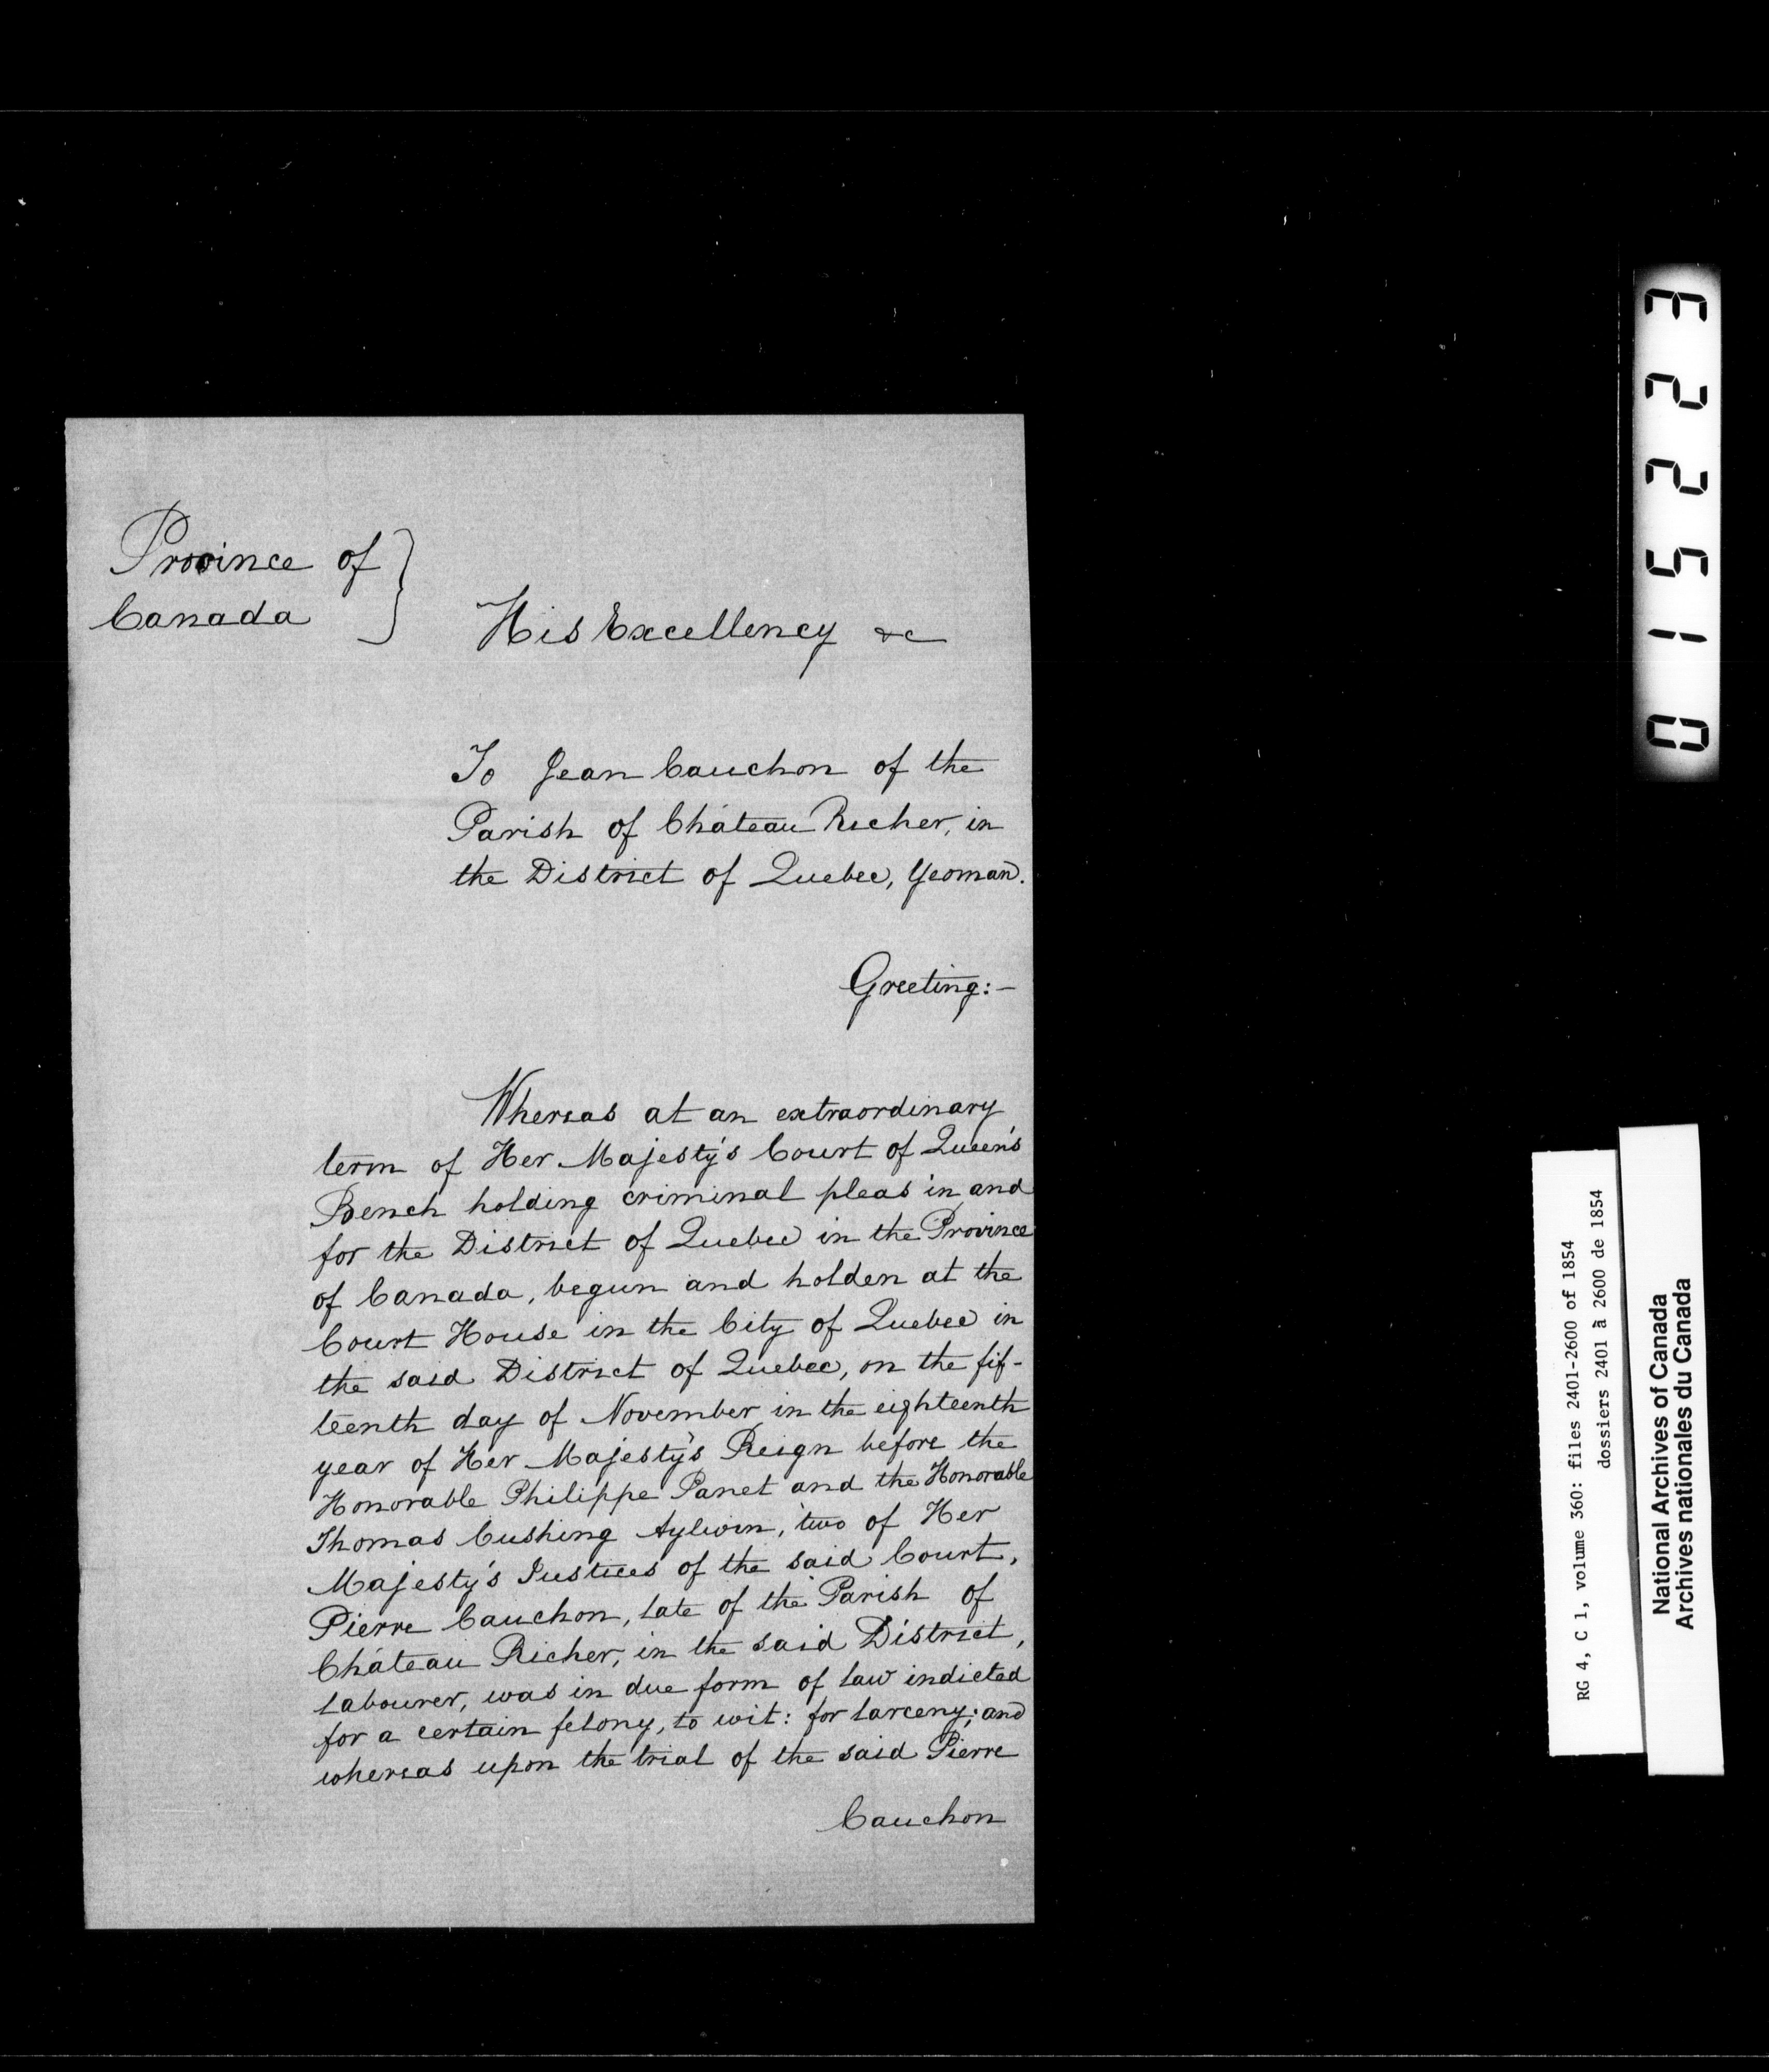 Province of }
Canada
His Excellency &c
To Jean Cauchon of the
Parish of Château Richer, in
the District of Quebec, Yeoman.
Greeting:-
Whereas at an extraordinary
term of Her Majesty's Court of Queen's
Bench holding criminal pleas in and
for the District of Quebec in the Province
of Canada, begun and holden at the
Court House in the City of Quebec in
the said District of Quebec, on the fif-
teenth day of November in the eighteenth
year of Her Majesty's Reign before the
Honorable Philippe Panet and the Honorable
Thomas Cushing Aylwin, two of Her
Majesty's Justices of the said Court,
Pierre Cauchon, late of the Parish of
Château Richer, in the said District,
labourer, was in due form of law indicted
for a certain felony, to wit: for larceny; and
whereas upon the trial of the said Pierre
Cauchon
015223
RG 4, C 1, volume 360: files 2401-2600 of 1854
dossiers 2401 à 2600 de 1854
National Archives of Canada
Archives nationales du Canada